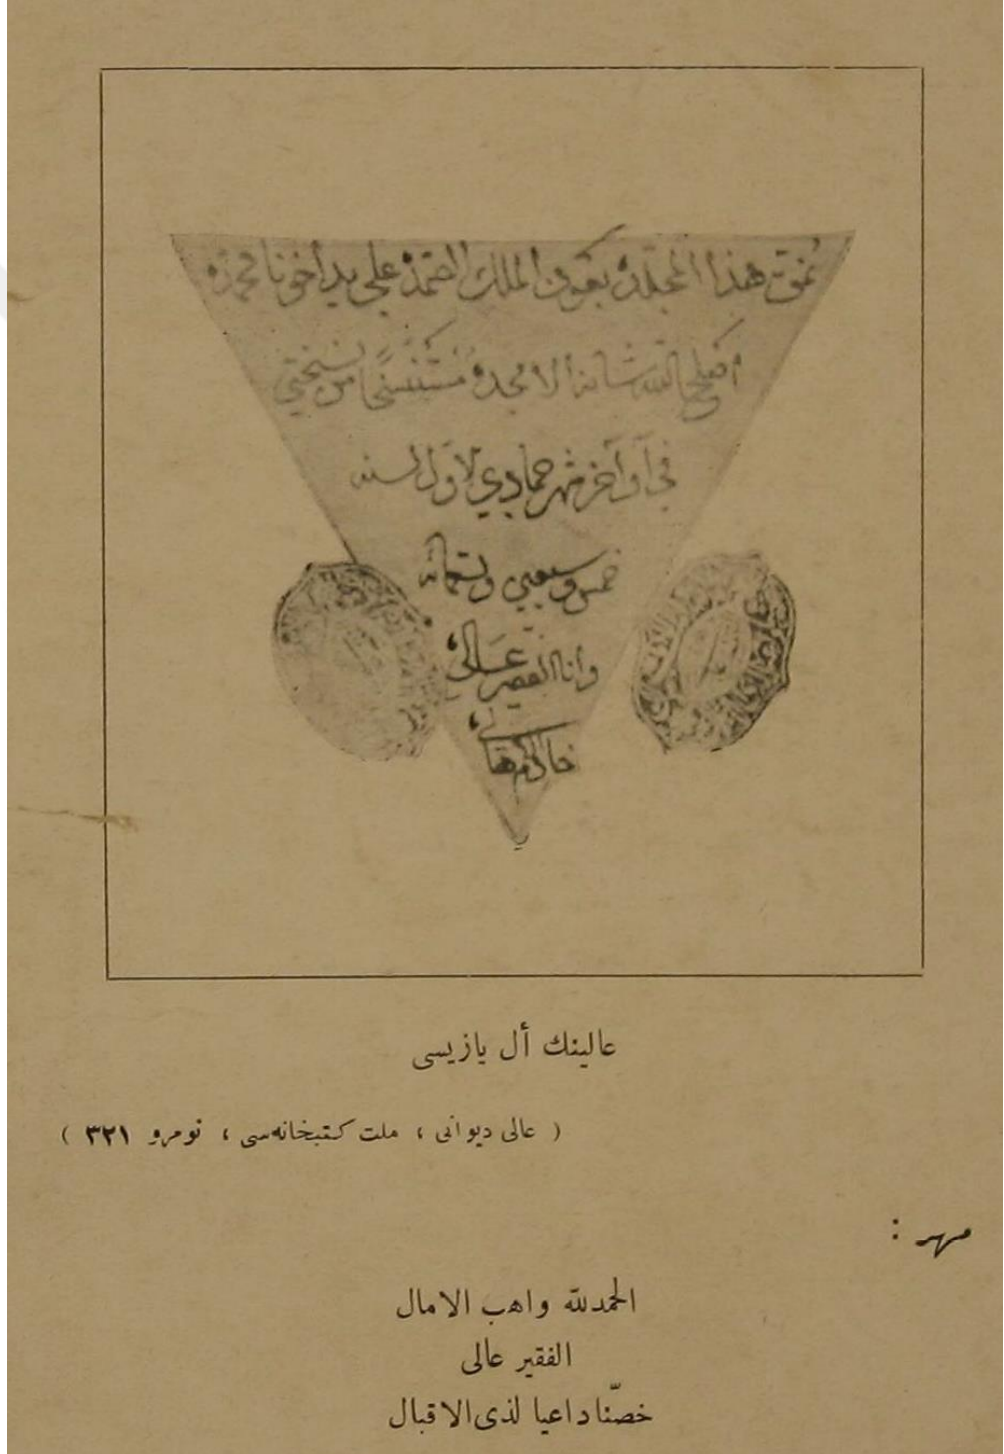 نمق هذا المجلد بعون الملك الصمد على يد أخونا محمد
الله شانه الامجد مستنسخا من نسختي
في أواخر شهر جمادي لاول لسنه
خمس وسبعين وتسعمائه
وانا الفقير عالي
خاك
عالينك أل يازيسى
( عالى ديوانى ، ملت كتبخانه‌سى ، نومرو ٣٢١ )
مهر :
الحمدلله واهب الامال
الفقير عالى
خصّنا داعيا لذى الاقبال